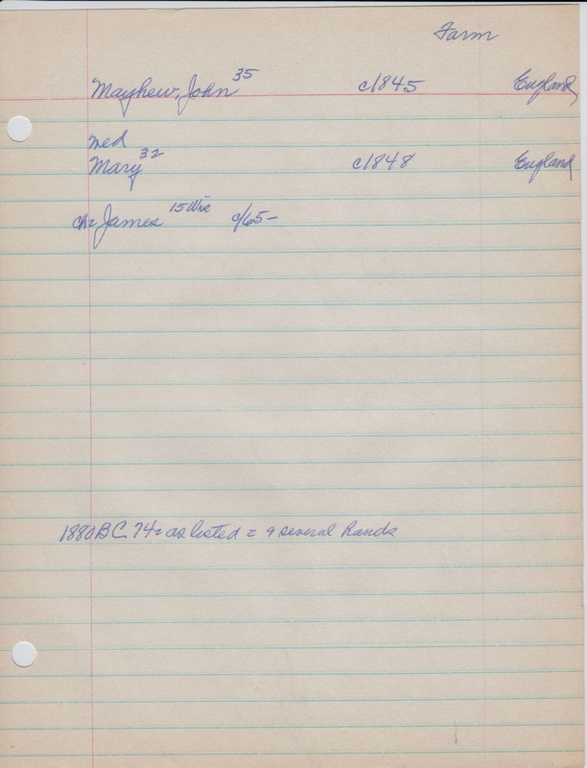 Farm
Mayhew, John 35 c/1845 England
med
Mary 32 c/1848 England
ch= James 15 Wis c/65-
1880 B.C. 74= as listed = & several hands